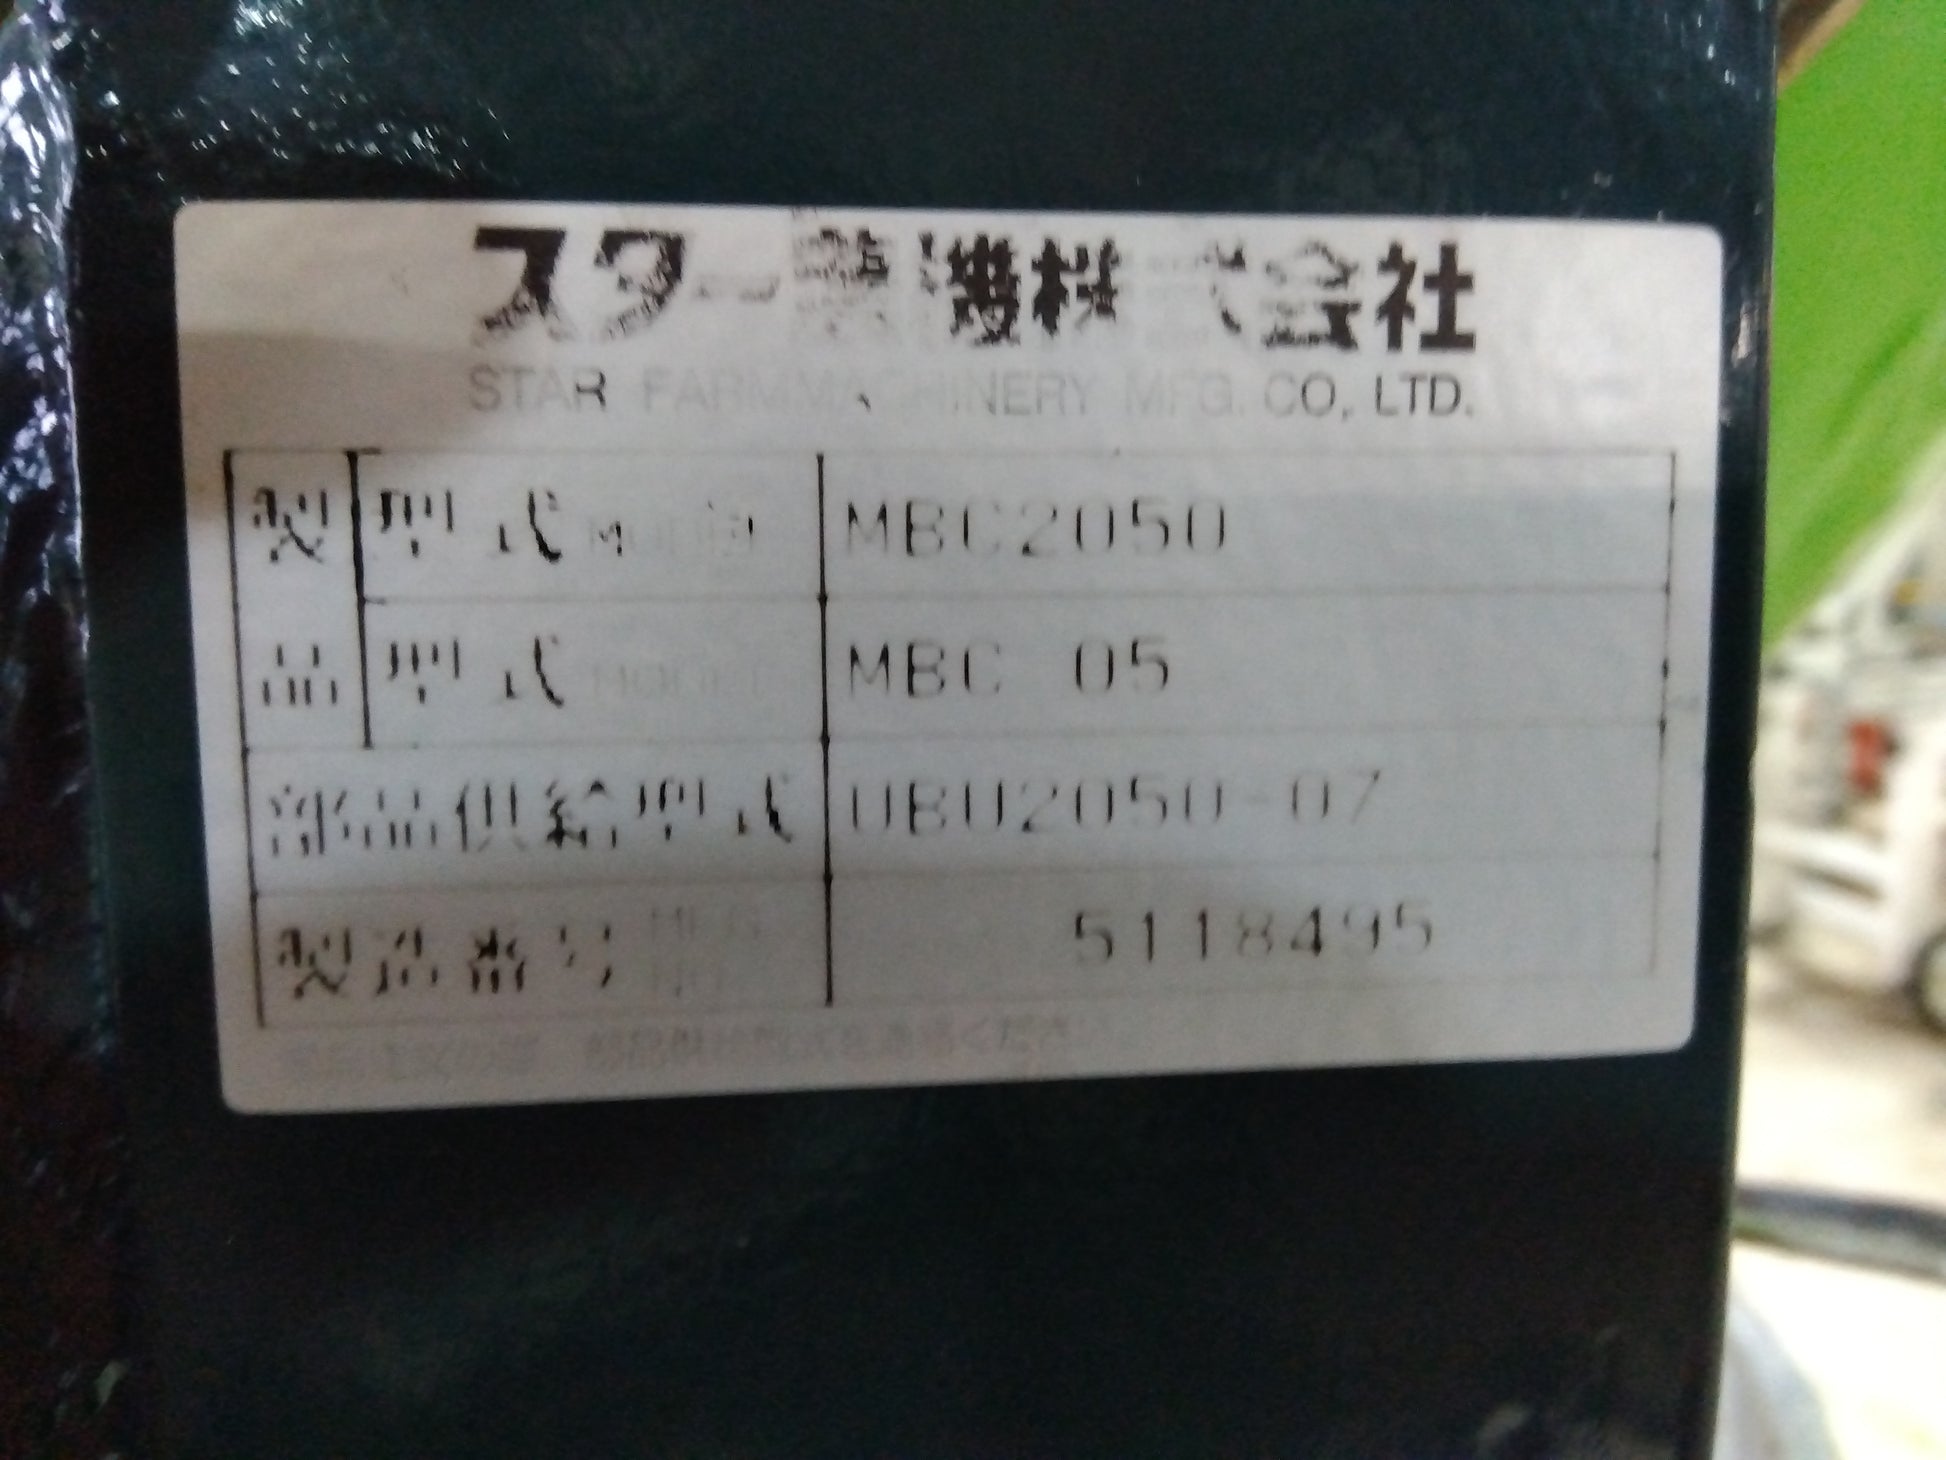 スター農機械株式会社
STAR FARMMACHINERY MFG. CO., LTD.
製品 型式 MODEL MBC2050
型式 MODEL MBC 05
部品供給型式 UBU2050-07
製造番号 MFG NO. 5118495